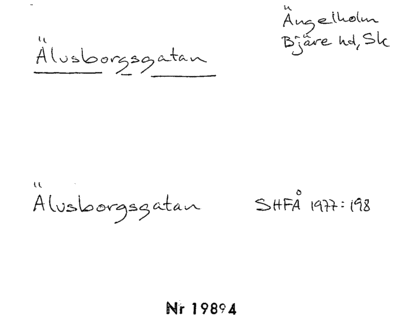 Älvsborgsgatan
Ängelholm
Bjäre hd, Sk
Älvsborgsgatan SHFÅ 1977:198
Nr 19894